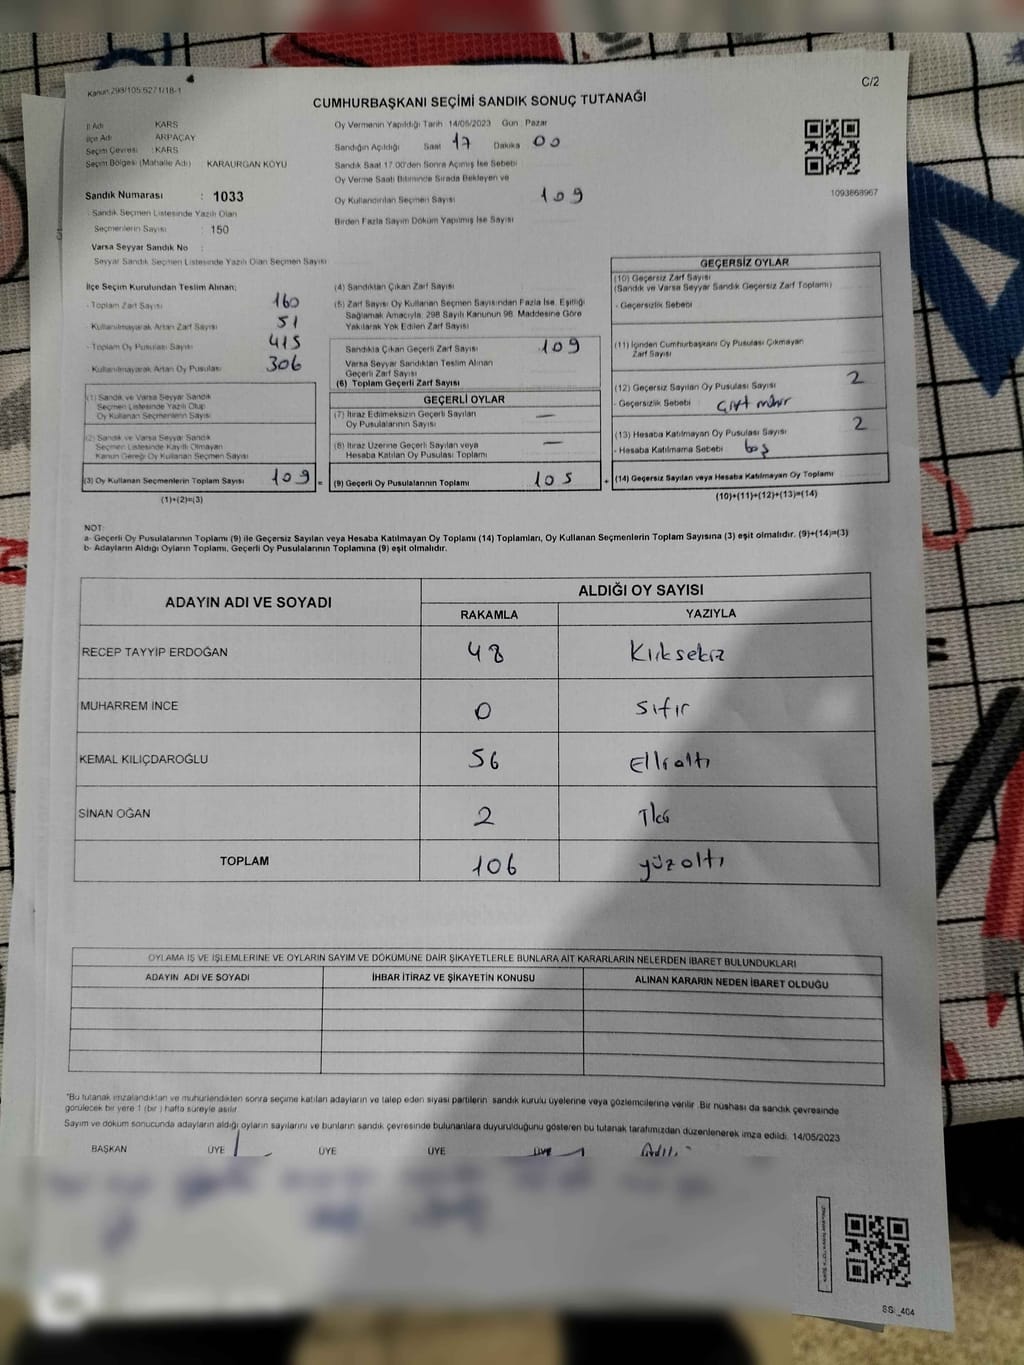 Kanun 298/105.5271/18-1
C/2
CUMHURBAŞKANI SEÇİMİ SANDIK SONUÇ TUTANAĞI
İl Adı KARS
İlçe Adı ARPAÇAY
Seçim Çevresi : KARS
Seçim Bölgesi (Mahalle Adı) KARAURGAN KÖYÜ
Sandık Numarası : 1033
Sandık Seçmen Listesinde Yazılı Olan
Seçmenlerin Sayısı : 150
Varsa Seyyar Sandık No :
Seyyar Sandık Seçmen Listesinde Yazılı Olan Seçmen Sayısı
Oy Vermenin Yapıldığı Tarih 14/05/2023 Gün Pazar
Sandığın Açıldığı Saat 17 Dakika 00
Sandık Saat 17.00'den Sonra Açılmış İse Sebebi
Oy Verme Saati Bitiminde Sırada Bekleyen ve
Oy Kullandırılan Seçmen Sayısı 109
Birden Fazla Sayım Döküm Yapılmış İse Sayısı
1093868967
İlçe Seçim Kurulundan Teslim Alınan;
- Toplam Zarf Sayısı 160
- Kullanılmayarak Artan Zarf Sayısı 51
- Toplam Oy Pusulası Sayısı 415
- Kullanılmayarak Artan Oy Pusulası 306
(1) Sandık ve Varsa Seyyar Sandık
Seçmen Listesinde Yazılı Olup
Oy Kullanan Seçmenlerin Sayısı
(2) Sandık ve Varsa Seyyar Sandık
Seçmen Listesinde Kayıtlı Olmayan
Kanun Gereği Oy Kullanan Seçmen Sayısı
(3) Oy Kullanan Seçmenlerin Toplam Sayısı 109 =
(1)+(2)=(3)
(4) Sandıktan Çıkan Zarf Sayısı
(5) Zarf Sayısı Oy Kullanan Seçmen Sayısından Fazla İse, Eşitliği
Sağlamak Amacıyla, 298 Sayılı Kanunun 98. Maddesine Göre
Yakılarak Yok Edilen Zarf Sayısı
Sandıkta Çıkan Geçerli Zarf Sayısı 109
Varsa Seyyar Sandıktan Teslim Alınan
Geçerli Zarf Sayısı
(6) Toplam Geçerli Zarf Sayısı
GEÇERLİ OYLAR
(7) İtiraz Edilmeksizin Geçerli Sayılan —
Oy Pusulalarının Sayısı
(8) İtiraz Üzerine Geçerli Sayılan veya —
Hesaba Katılan Oy Pusulası Toplamı
(9) Geçerli Oy Pusulalarının Toplamı 105 +
GEÇERSİZ OYLAR
(10) Geçersiz Zarf Sayısı
(Sandık ve Varsa Seyyar Sandık Geçersiz Zarf Toplamı)
- Geçersizlik Sebebi
(11) İçinden Cumhurbaşkanı Oy Pusulası Çıkmayan
Zarf Sayısı
(12) Geçersiz Sayılan Oy Pusulası Sayısı 2
- Geçersizlik Sebebi çift mühür
(13) Hesaba Katılmayan Oy Pusulası Sayısı 2
- Hesaba Katılmama Sebebi boş
(14) Geçersiz Sayılan veya Hesaba Katılmayan Oy Toplamı
(10)+(11)+(12)+(13)=(14)
NOT:
a- Geçerli Oy Pusulalarının Toplamı (9) ile Geçersiz Sayılan veya Hesaba Katılmayan Oy Toplamı (14) Toplamları, Oy Kullanan Seçmenlerin Toplam Sayısına (3) eşit olmalıdır. (9)+(14)=(3)
b- Adayların Aldığı Oyların Toplamı, Geçerli Oy Pusulalarının Toplamına (9) eşit olmalıdır.
ADAYIN ADI VE SOYADI ALDIĞI OY SAYISI
RAKAMLA YAZIYLA
RECEP TAYYİP ERDOĞAN 48 Kırksekiz
MUHARREM İNCE 0 Sıfır
KEMAL KILIÇDAROĞLU 56 Ellialtı
SİNAN OĞAN 2 İki
TOPLAM 106 yüzaltı
OYLAMA İŞ VE İŞLEMLERİNE VE OYLARIN SAYIM VE DÖKÜMÜNE DAİR ŞİKAYETLERLE BUNLARA AİT KARARLARIN NELERDEN İBARET BULUNDUKLARI
ADAYIN ADI VE SOYADI İHBAR İTİRAZ VE ŞİKAYETİN KONUSU ALINAN KARARIN NEDEN İBARET OLDUĞU
"Bu tutanak imzalandıktan ve mühürlendikten sonra seçime katılan adayların ve talep eden siyasi partilerin sandık kurulu üyelerine veya gözlemcilerine verilir. Bir nüshası da sandık çevresinde
görülecek bir yere 1 (bir) hafta süreyle asılır.
Sayım ve döküm sonucunda adayların aldığı oyların sayılarını ve bunların sandık çevresinde bulunanlara duyurulduğunu gösteren bu tutanak tarafımızdan düzenlenerek imza edildi. 14/05/2023
BAŞKAN ÜYE ÜYE ÜYE ÜYE
SSİ_404